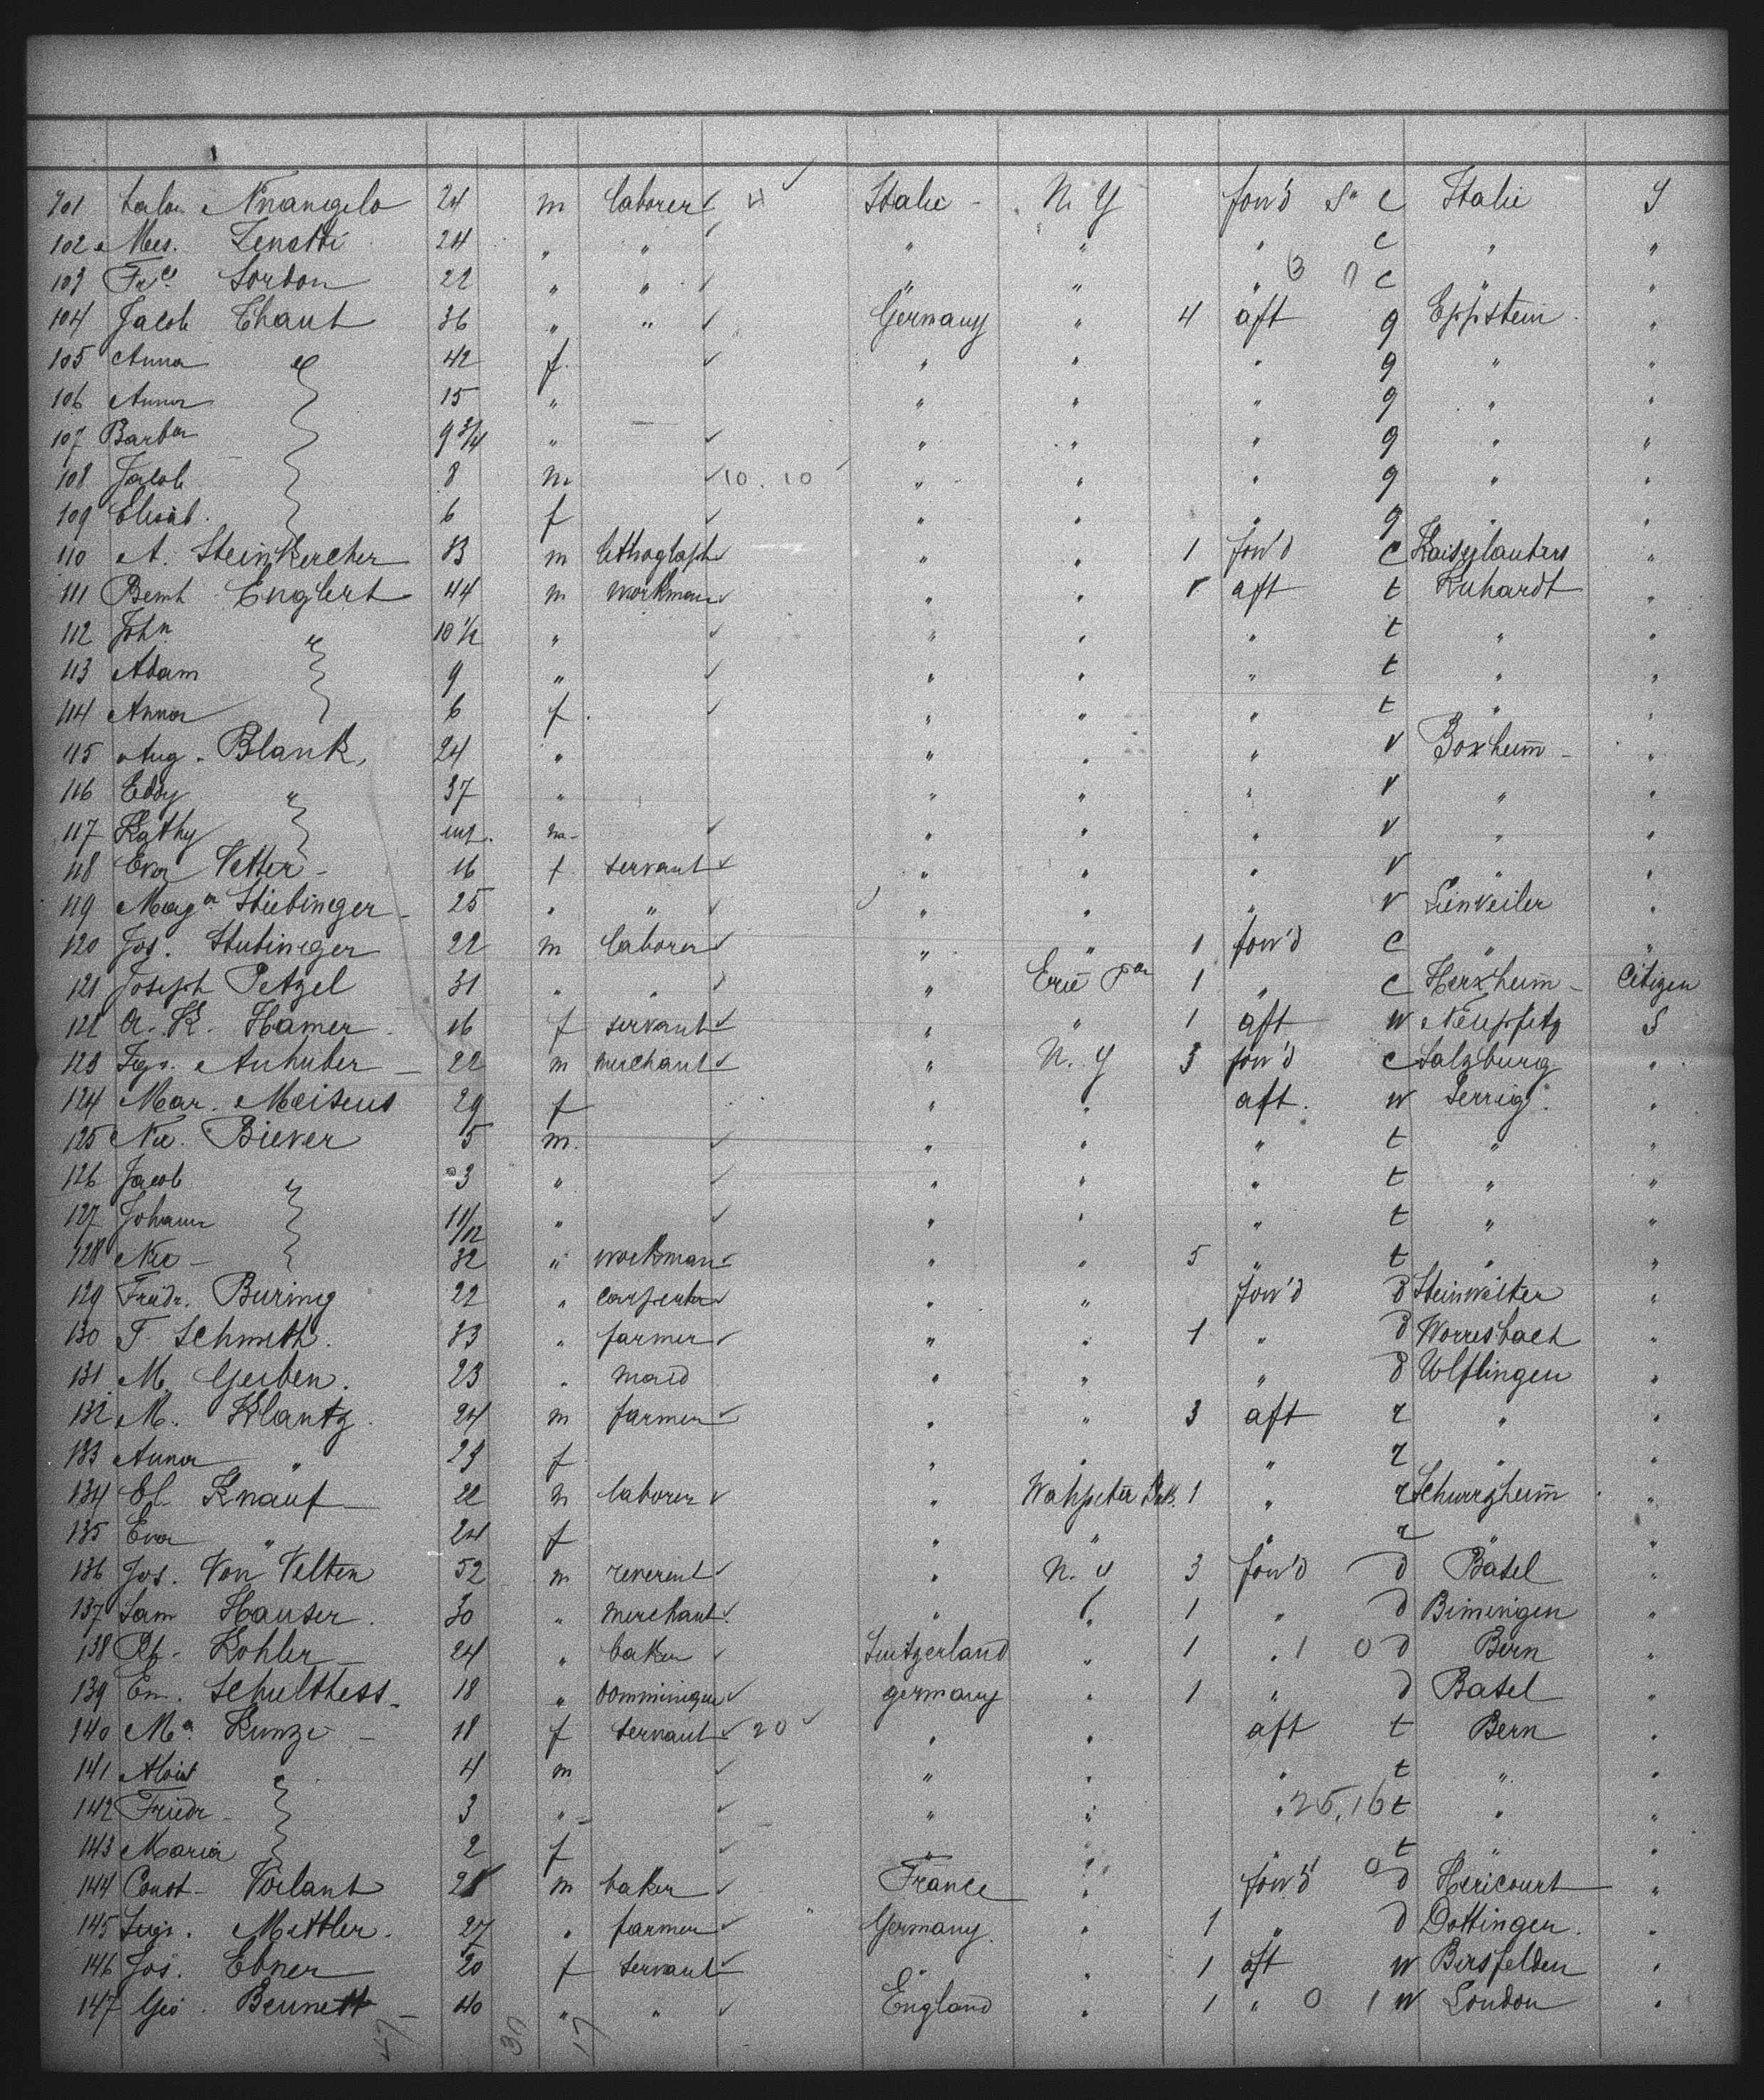 101 Nnangelo 24 m laborer Italie N. Y fow'd c Italie S
102 Mes. Zenatti 24 " " " " " c " "
103 Frc. Sordon 22 " " " " " c " "
104 Jacob Thaut 36 " " Germany " 4 aft g Eppstein "
105 Anna " 42 f. " " " g " "
106 Anna 15 " " " " g " "
107 Barba 9 3/4 " " " " g " "
108 Jacob 8 m 10.10 " " " g " "
109 Elisab. 6 f " " " g " "
110 A. Steinkercher 33 m lithograph " " 1 fow'd c Kaiserlautern "
111 Bernh Englert 44 m workman " " 1 aft t Kuhardt "
112 John " 10 1/2 " " " " t " "
113 Adam 9 " " " " t " "
114 Anna 6 f. " " " t " "
115 Aug. Blank, 24 " " " " v Boxheim "
116 Eddy " 37 " " " " v " "
117 Kathy inf. m " " " v " "
118 Eva Vetter 16 f servant " " " v " "
119 Maga Stiebinger 25 " " " " " v Linweiler "
120 Jos. Stubinger 22 m laborer " " 1 fow'd c " "
121 Joseph Petzel 31 " " " Erie Pa 1 " c Herxheim Citizen
122 A. K. Hamer 16 f servant " " 1 aft w Neupfitz S
123 Anhuber 22 m merchant " N. Y 3 fow'd c Salzburg "
124 Mar. Meisens 29 f " " aft. w Serrig. "
125 Nic. Biever 5 m. " " " t " "
126 Jacob " 3 " " " " t " "
127 Johann 11/12 " " " " t " "
128 Nic 32 " workman " " 5 " t " "
129 Fridr. Buring 22 " carpenter " " fow'd d Steinwilter "
130 F Schmith. 33 " farmer " " 1 " d Worresbach "
131 M. Gerben. 23 " maid " " " d Ulflingen "
132 M. Klantz. 24 m farmer " " 3 aft r " "
133 Anna " 23 f " " " r " "
134 El. Knauf 22 m laborer " Wahpeton Dak. 1 " r "
135 Eva " 24 f " " " r " "
136 Jos. Von Velten 52 m reverent " N. Y 3 fow'd d Basel "
137 Sam Hauser. 30 " merchant " " 1 " d Binningen "
138 Kohler 24 " baker Switzerland " 1 " 1 0 d Bern "
139 Em. Schulthess 18 " Domminique germany " 1 " d Basel "
140 Ma. Kunze 18 f servant 20 " " aft t Bern "
141 Alois " 4 m " " " t " "
142 Friedr 3 " " " " 25,16 t " "
143 Maria 2 f " " " t " "
144 Const. Vorlant 28 m baker France " fow'd 0 d Hericourt "
145 Mettler. 27 " farmer Germany. " 1 " d Dottingen. "
146 Jos. Ebner 20 f servant " " 1 aft w Birsfelden "
147 Geo. Bennett 40 " " England " 1 " 0 1 w London "
47 30 17